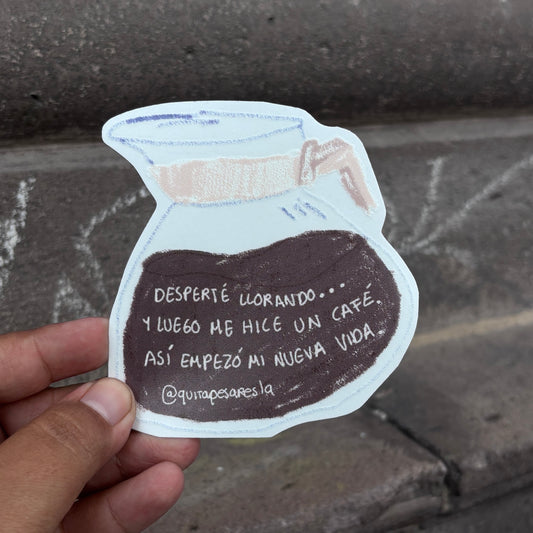 DESPERTÉ LLORANDO...
Y LUEGO ME HICE UN CAFÉ.
ASÍ EMPEZÓ MI NUEVA VIDA.
@quitapesares.la